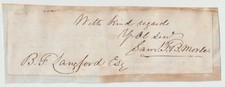 With kind regards
Yr Ob Serv
Saml F. B. Morse
B. F. Langford Esq